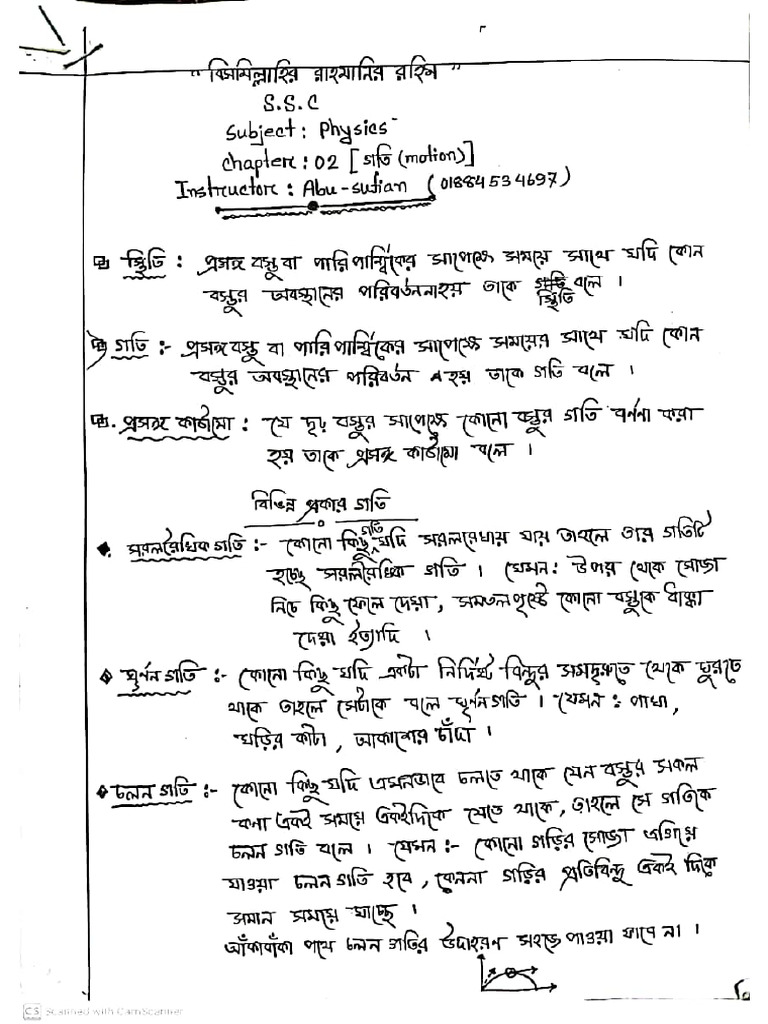 "বিসমিল্লাহির রাহমানির রহিম"
S.S.C
Subject: Physics
Chapter: 02 [গতি (motion)]
Instructor: Abu-sufian (01884534697)
স্থিতি : প্রসঙ্গ বস্তু বা পারিপার্শ্বিকের সাপেক্ষে সময়ে সাথে যদি কোন
বস্তুর অবস্থানের পরিবর্তন নাহয় তাকে স্থিতি বলে ।
গতি :- প্রসঙ্গ বস্তু বা পারিপার্শ্বিকের সাপেক্ষে সময়ের সাথে যদি কোন
বস্তুর অবস্থানের পরিবর্তন হয় তাকে গতি বলে ।
প্রসঙ্গ কাঠামো : যে দৃঢ় বস্তুর সাপেক্ষে কোনো বস্তুর গতি বর্ণনা করা
হয় তাকে প্রসঙ্গ কাঠামো বলে ।
বিভিন্ন প্রকার গতি
সরলরৈখিক গতি :- কোনো কিছু গতি যদি সরলরেখায় যায় তাহলে তার গতিটি
হচ্ছে সরলরৈখিক গতি । যেমন: উপর থেকে সোজা
নিচে কিছু ফেলে দেয়া, সমতল পৃষ্টে কোনো বস্তুকে ধাক্কা
দেয়া ইত্যাদি ।
ঘূর্ণন গতি :- কোনো কিছু যদি একটা নির্দিষ্ট বিন্দুর সমদূরুতে থেকে ঘুরতে
থাকে তাহলে সেটাকে বলে ঘূর্ণন গতি । যেমন : পাখা,
ঘড়ির কাটা, আকাশের চাঁদ ।
চলন গতি :- কোনো কিছু যদি এমনভাবে চলতে থাকে যেন বস্তুর সকল
কনা একই সময়ে একইদিকে যেতে থাকে, তাহলে সে গতিকে
চলন গতি বলে । যেমন :- কোনো গাড়ির সোজা এগিয়ে
যাওয়া চলন গতি হবে, কেননা গাড়ির প্রতিবিন্দু একই দিকে
সমান সময়ে যাচ্ছে ।
আঁকাবাঁকা পথে চলন গতির উদাহরণ সহজে পাওয়া যাবে না ।
CS Scanned with CamScanner